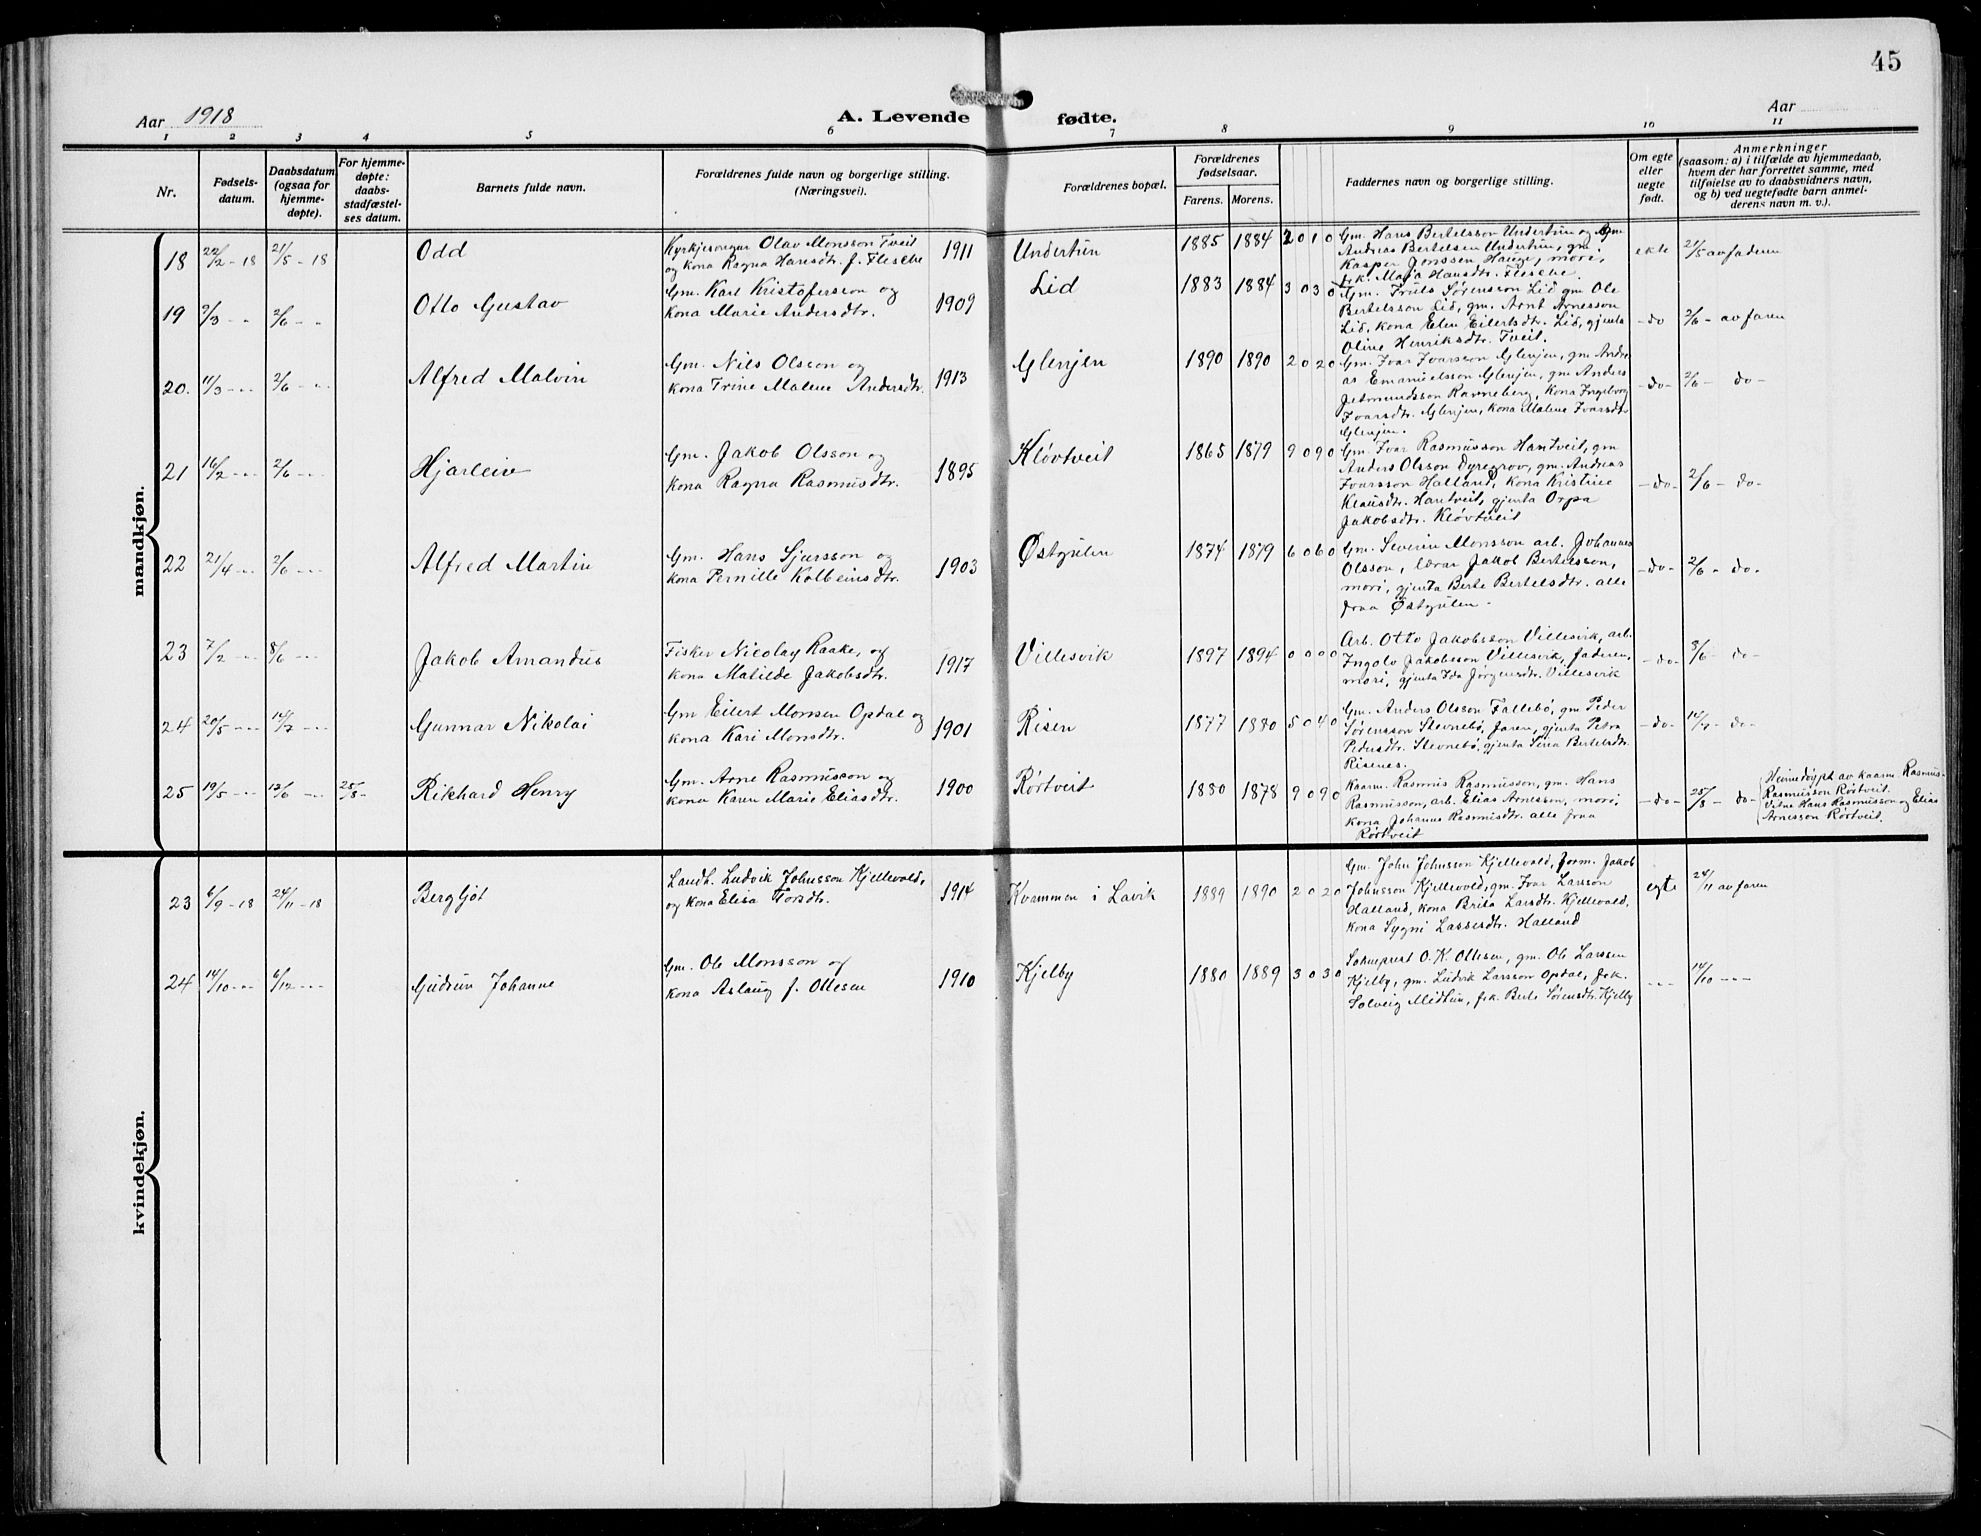 45
Aar 1918
A. Levende fødte.
Aar
1 2 3 4 5 6 7 8 9 10 11
Nr.
Fødsels-
datum.
Daabsdatum
(ogsaa for
hjemme-
døpte).
For hjemme-
døpte:
daabs-
stadfæstel-
ses datum.
Barnets fulde navn.
Forældrenes fulde navn og borgerlige stilling.
(Næringsvei).
Forældrenes bopæl.
Forældrenes
fødselsaar.
Farens. Morens.
Faddernes navn og borgerlige stilling.
Om egte
eller
uegte
født.
Anmerkninger
(saasom: a) i tilfælde av hjemmedaab,
hvem der har forrettet samme, med
tilføielse av to daabsvidners navn,
og b) ved uegtefødte barn anmel-
derens navn m. v.).
mandkjøn.
18 22/2 - 18 21/5 - 18 Odd
Kyrkjesongar Olav Monsson Tveit
og kona Ragna Hansdtr. f. Flesche
1911 Undertun 1885 1884 2 0 1 0
Gm. Hans Bertelsson Undertun og Gm
Andreas Bertelsen Undertun, gm.
Kasper Jonssen Hauge, mori,
frk. Marja Hansdtr. Flesche.
ekte 21/5 av faderen
19 2/3 - - 2/6 - - Otto Gustav
Gm. Karl Kristofersson og
kona Marie Andersdtr.
1909 Lid 1883 1884 3 0 3 0
Gm. Truls Sørensson Lid gm Ole
Bertelsson Lid, gm. Arnt Arnesson
Lid, kona Elen Eilertsdtr. Lid, gjenta
Oline Henriksdtr. Tveit.
- do 2/6 - av faren
20. 11/3 - - - 2/6 - - - Alfred Malvin
Gm. Nils Olsson og
kona Trine Malene Andersdtr.
1913 Glenjen 1890 1890 2 0 2 0
Gm. Ivar Ivarsson Glenjen, gm Andre
as Emanuelsson Glenjen, gm Anders
Ravneberg, kona Ingeborg
Ivarsdtr. Glenjen, kona Malene Ivarsdtr
Glenjen.
- do - 2/6 - do -
21 16/2 - - - 2/6 - - - Hjarleiv
Gm. Jakob Olsson og
kona Ragna Rasmusdtr.
1895 Kløvtveit 1865 1879 9 0 9 0
Gm. Ivar Rasmusson Hantveit, gm
Anders Olsson Dyregrov, gm. Andreas
Ivarsson Halland, kona Kristine
Klausdtr. Hantveit, gjenta Orpa
Jakobsdtr. Kløvtveit
- do - 2/6 - do -
22 21/4 - - - 2/6 - - - Alfred Martin
Gm. Hans Sjursson og
kona Pernille Kolbeinsdtr.
1903 Østgulen 1874 1879 6 0 6 0
Gm. Severin Monsson arb. Johannes
Olsson, lærar Jakob Bertelsson,
mori, gjenta Berte Bertelsdtr. alle
fraa Østgulen -
- do - 2/6 - do -
23 7/2 - - - 8/6 - - - Jakob Amandus
Fisker Nicolay Raake, og
kona Matilde Jakobsdtr.
1917 Villesvik 1897 1894 0 0 0 0
Arb. Otto Jakobsson Villesvik, arb.
Ingolv Jakobsson Villesvik, faderen,
mori, gjenta Ida Jørgensdtr. Villesvik
- do - 8/6 - do -
24 20/5 - - - 14/7 - - - Gunnar Nikolai
Gm Eilert Monsen Opdal og
kona Kari Monsdtr.
1901 Risen 1877 1880 5 0 4 0
Gm. Anders Olsson Fallebø, gm Peder
Sørensson Stevnebø, faren, gjenta Petra
Pedersdtr. Stevnebø, gjenta Sina Bertelsdtr.
Risenes.
- do - 14/7 - do -
25 19/5 - - - 12/6 - - - 25/8 - Rikhard Henry
Gm. Arne Rasmusson og
kona Karen Marie Eliasdtr.
1900 Rørtveit 1880 1878 9 0 9 0
Kaarm. Rasmus Rasmusson, gm. Hans
Rasmusson, arb. Elias Arnesson, mori,
kona Johanne Rasmusdtr. alle fraa
Rørtveit
- do - 25/8 - do -
Heimedøypt av kaarm Rasmus
Rasmusson Rørtveit.
Vitne Hans Rasmusson og Elias
Arnesson Rørtveit.
kvindekjøn.
23 6/9 - 18 24/11 - 18 Bergljot
Landh. Ludvik Johnsson Kjellevold,
og kona Elisa Torsdtr.
1914 Kvammen i Lavik 1889 1890 2 0 2 0
Gm. John Johnsson Kjellevold, form. Jakob
Johnsson Kjellevold, gm. Ivar Larsson
Halland, kona Brita Larsdtr. Kjellevold,
kona Sygni Lassesdtr. Halland
egte 24/11 av faren
24 14/10 - - - 6/12 - - - Gudrun Johanne
Gm. Ole Monsson og
kona Aslaug f. Ottesen
1910 Kjelby 1880 1889 3 0 3 0
Sokneprest O. K. Ottesen, gm. Ole Larssen
Kjelby, gm. Ludvik Larsson Opdal, frk.
Solveig Midtun, frk. Berte Sørensdtr. Kjelby
- - - 14/10 - - -